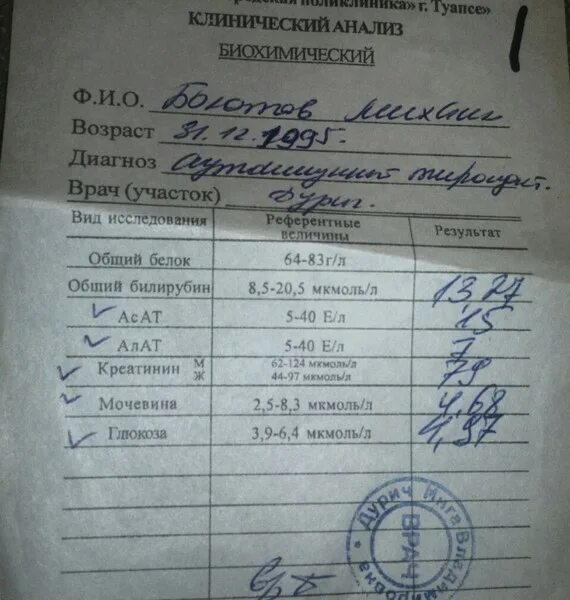 поликлиника» г. Туапсе»
КЛИНИЧЕСКИЙ АНАЛИЗ
БИОХИМИЧЕСКИЙ
Ф.И.О. Михаил
Возраст 31.12.1995г.
Диагноз Аутоиммунный тиреоидит.
Врач (участок) Дурич.
Вид исследования Референтные величины Результат
Общий белок 64-83г/л
Общий билирубин 8,5-20,5 мкмоль/л 13,27
АсАТ 5-40 Е/л 15
АлАТ 5-40 Е/л 7
Креатинин М 62-124 мкмоль/л 79
Ж 44-97 мкмоль/л
Мочевина 2,5-8,3 мкмоль/л 4,68
Глюкоза 3,9-6,4 мкмоль/л 4,97
Дурич Инга Владимировна
ВРАЧ